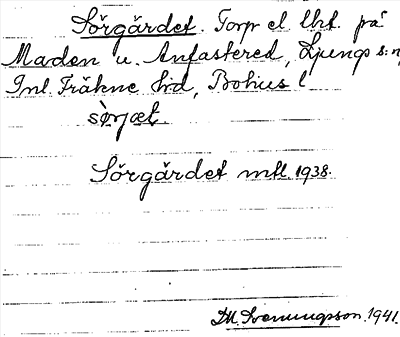 Sörgärdet. Torp el lht. på
Maden u. Anfastered, Ljungs s:n,
Inl. Fräkne hd, Bohus l
sörjæt.
Sörgärdet mtl. 1938.
M. Svenungsson. 1941.